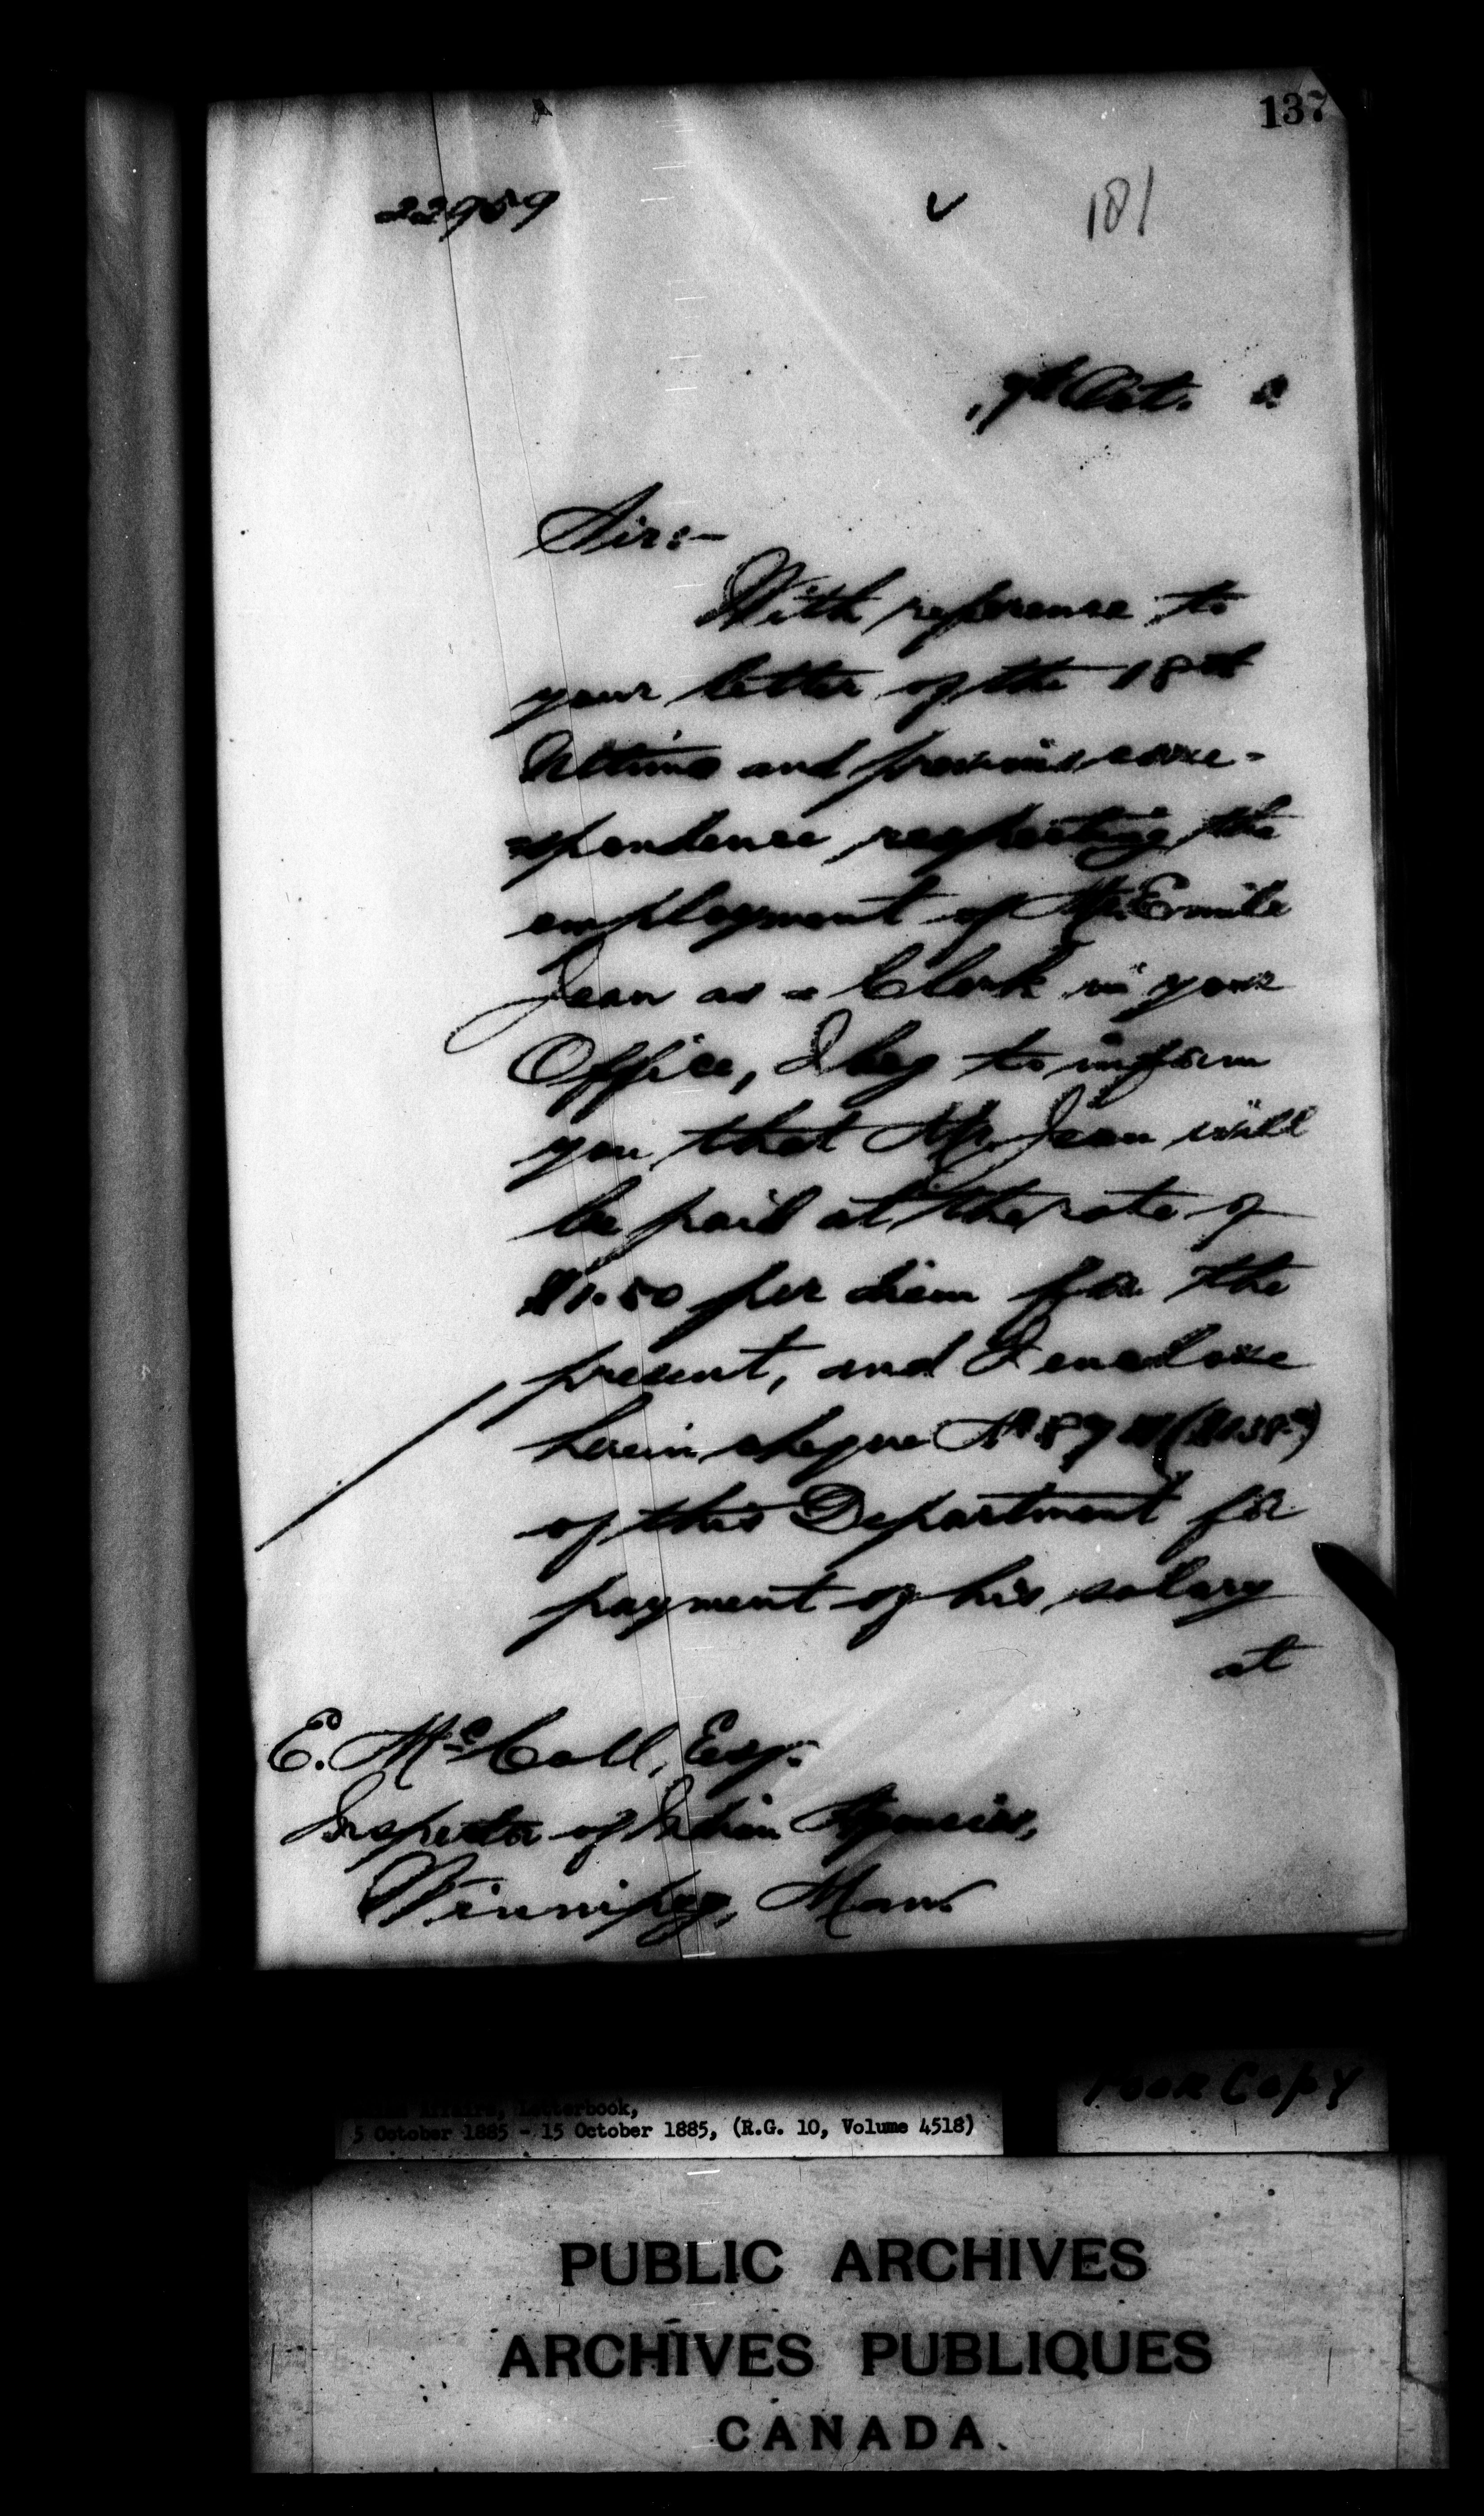 137
22959
181
7th Oct.
Sir:-
With reference to
your letter of the 18th
Ultimo and previous corre-
spondence respecting the
employment of Mr. Emile
Jean as a Clerk in your
Office, I beg to inform
you that Mr. Jean will
be paid at the rate of
$1.50 per diem for the
present, and I enclose
herein cheque No.
of this Department for
payment of his salary
at
E. McColl, Esq.
Inspector of Indian Agencies,
Winnipeg, Man.
Poor Copy
Affairs, Letterbook,
5 October 1885 - 15 October 1885, (R.G. 10, Volume 4518)
PUBLIC ARCHIVES
ARCHIVES PUBLIQUES
CANADA